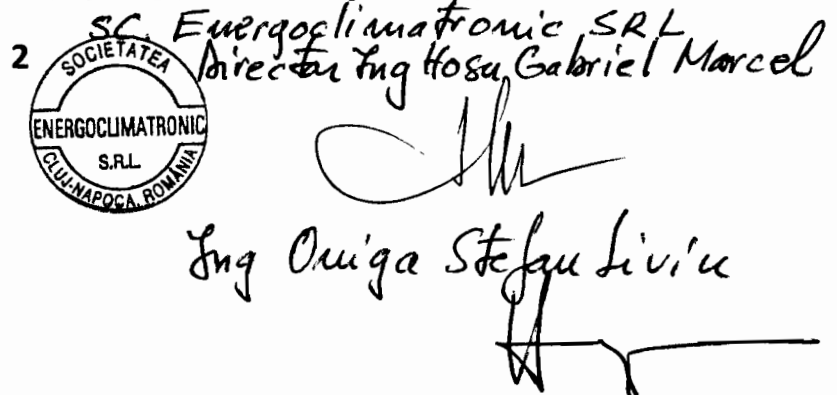 SC. Energoclimatronic SRL
2
Director Ing Hosu Gabriel Marcel
SOCIETATEA
ENERGOCLIMATRONIC
S.R.L.
CLUJ-NAPOCA, ROMÂNIA
Ing Oniga Stefan Liviu